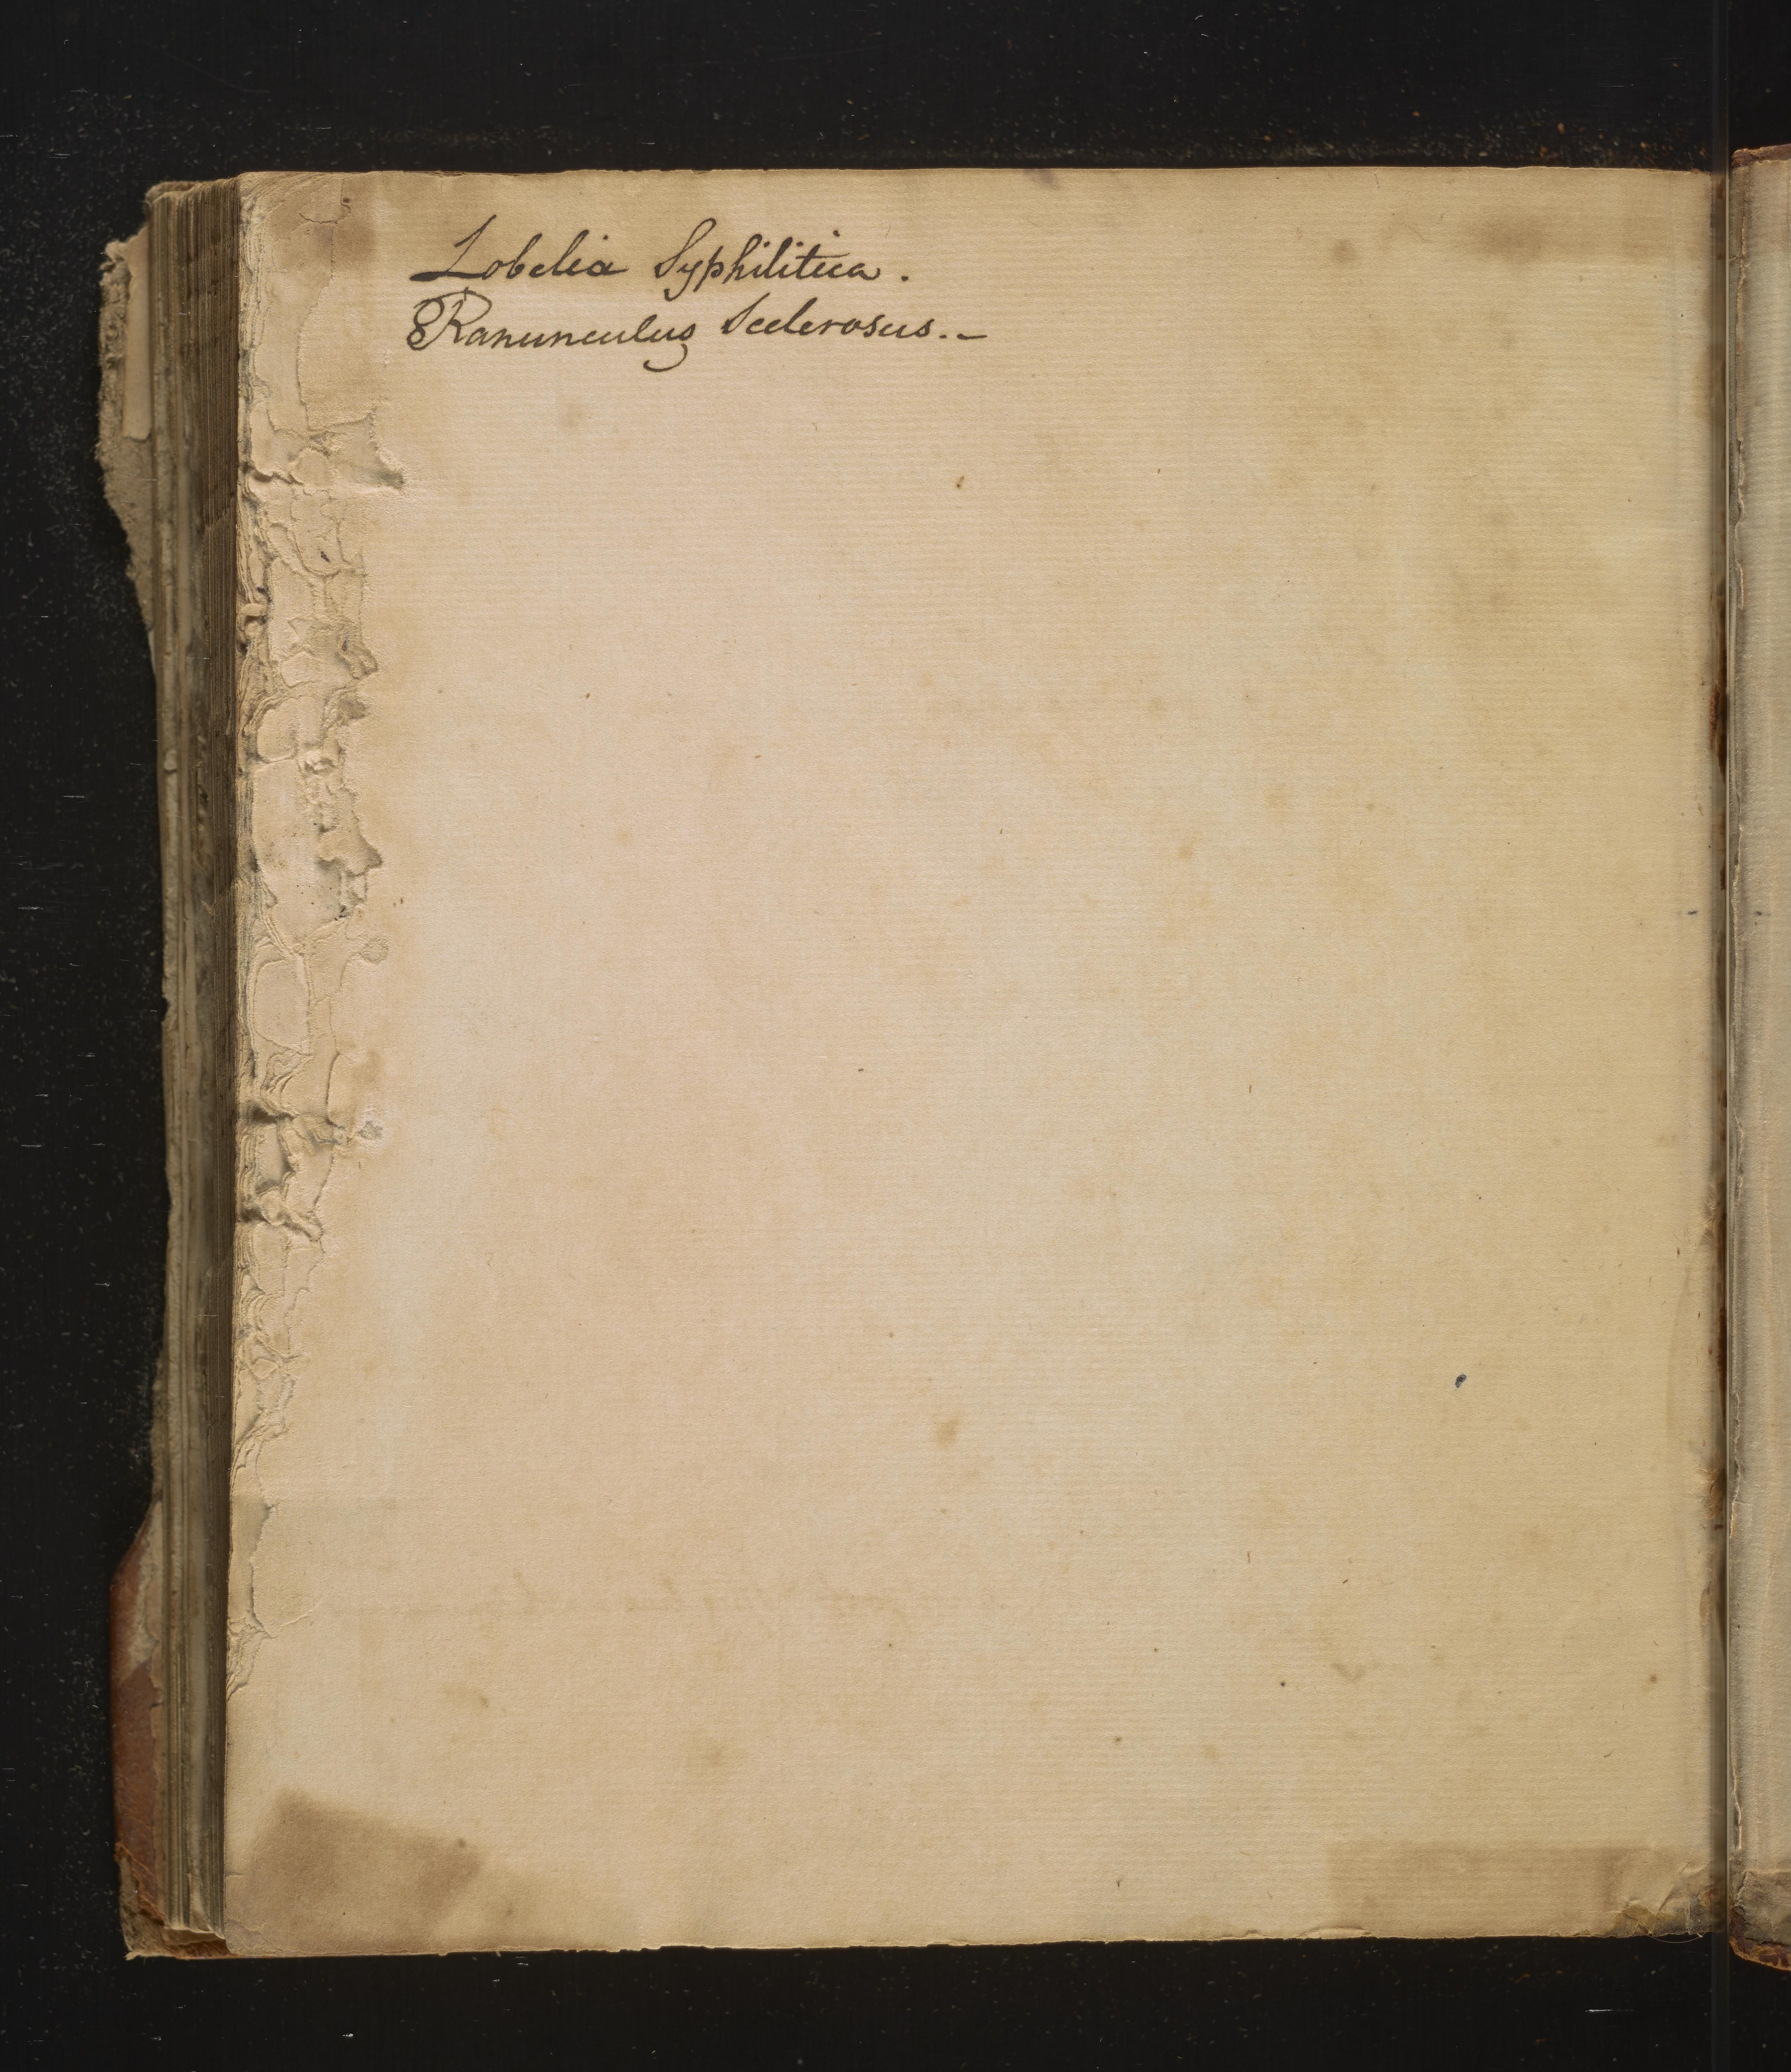 Lobelia Syphilitica.
Ranunculus Scelerosus.-